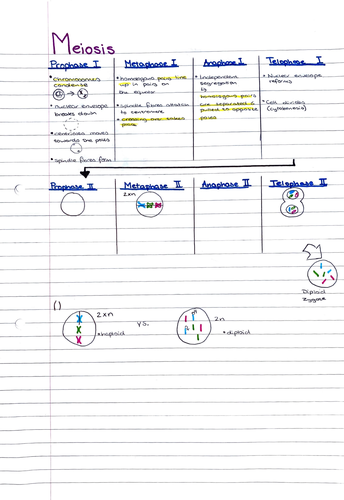 Meiosis
Prophase I
• Chromosomes
condense
• nuclear envelope
breaks down
• centrioles moves
towards the poles
• spindle fibres form
Metaphase I
• homologous pairs line
up in pairs on
the equator
• spindle fibres attach
to centromere
• crossing over takes
place
Anaphase I
• Independent
segregation
homologous pairs
are separated &
pulled to opposite
poles
Telophase I
• Nuclear envelope
reforms
• Cell divides
(cytokinesis)
Prophase II
Metaphase II
2xn
Anaphase II
Telophase II
Diploid
zygote
2xn
*haploid
vs.
2n
*diploid